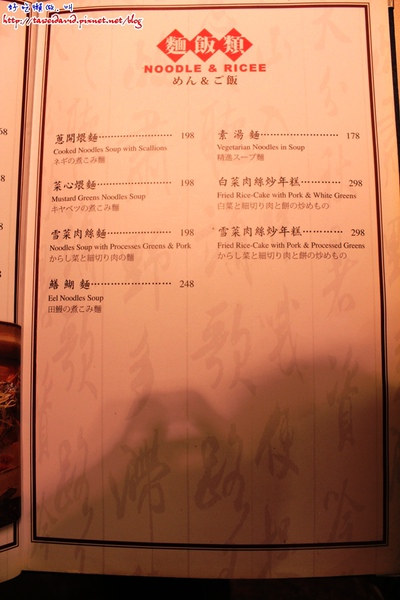 好吃懶做.叫
http://taweidavid.pixnet.net/blog
麵飯類
NOODLE & RICEE
めん&ご飯
蔥開煨麵 198
Cooked Noodles Soup with Scallions
ネギの煮こみ麺
菜心煨麵 198
Mustard Greens Noodles Soup
キヤベツの煮こみ麺
雪菜肉絲麵 198
Noodles Soup with Processes Greens & Pork
からし菜と細切り肉の麺
鱔鯝麵 248
Eel Noodles Soup
田鰻の煮こみ麺
素湯麵 178
Vegetarian Noodles in Soup
精進スープ麺
白菜肉絲炒年糕 298
Fried Rice-Cake with Pork & White Greens
白菜と細切り肉と餅の炒めもの
雪菜肉絲炒年糕 298
Fried Rice-Cake with Pork & Processed Greens
からし菜と細切り肉と餅の炒めもの